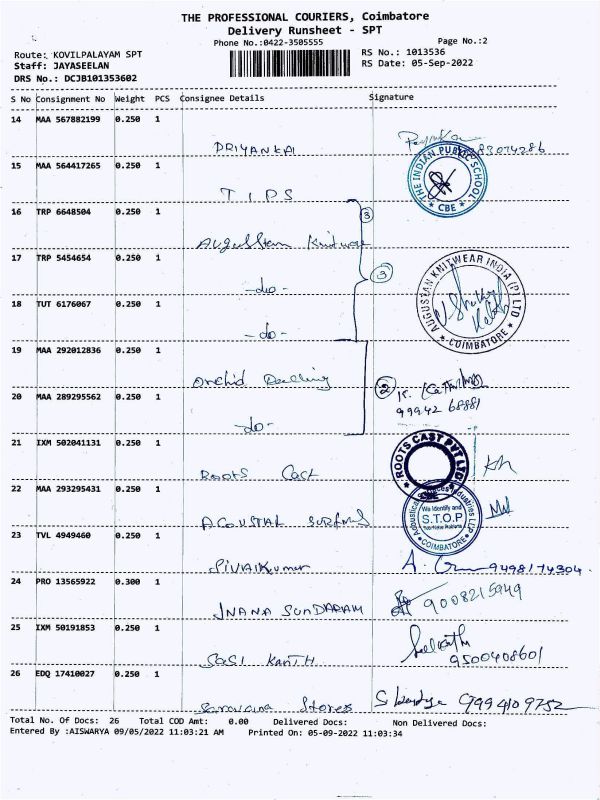 THE PROFESSIONAL COURIERS, Coimbatore
Delivery Runsheet - SPT
Phone No.:0422-3505555 Page No.:2
Route: KOVILPALAYAM SPT RS No.: 1013536
Staff: JAYASEELAN RS Date: 05-Sep-2022
DRS No.: DCJB101353602
S No Consignment No Weight PCS Consignee Details Signature
14 MAA 567882199 0.250 1
PRIYANKA
15 MAA 564417265 0.250 1
THE INDIAN PUBLIC SCHOOL
★ CBE ★
TIPS
16 TRP 6648504 0.250 1
3
17 TRP 5454654 0.250 1
-do-
3
AUGUSTAN KNITWEAR INDIA (P) LTD
★ COIMBATORE ★
18 TUT 6176067 0.250 1
-do-
19 MAA 292012836 0.250 1
Orchid
20 MAA 289295562 0.250 1
2
99942 68881
-do-
21 IXM 502041131 0.250 1
ROOTS CAST PVT LTD
CBE
Roots Cast
22 MAA 293295431 0.250 1
Industries LLP
We Identify and
S.T.O.P
COIMBATORE
23 TVL 4949460 0.250 1
SIVAIKumar
A. 9498174304
24 PRO 13565922 0.300 1
JNANA SUNDARAM
9008215949
25 IXM 50191853 0.250 1
SaSi KanTH
9500408601
26 EDQ 17410027 0.250 1
Saravana Stores
9994109752
Total No. Of Docs: 26 Total COD Amt: 0.00 Delivered Docs: Non Delivered Docs:
Entered By :AISWARYA 09/05/2022 11:03:21 AM Printed On: 05-09-2022 11:03:34